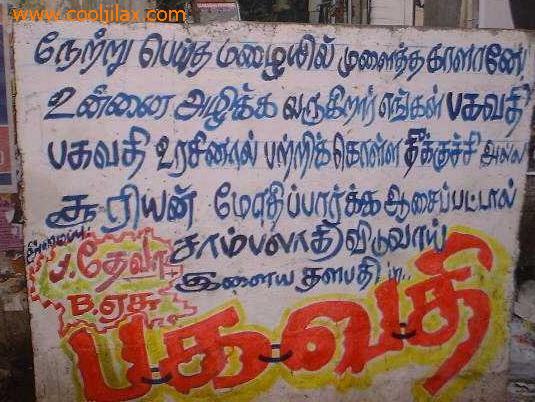 www.cooljilax.com
நேற்று பெய்த மழையில் முளைத்த காளானே!
உன்னை அழிக்க வருகிறார் எங்கள் பகவதி
பகவதி உரசினால் பற்றிக்கொள்ள தீக்குச்சி அல்ல
சூரியன் மோதிப்பார்க்க ஆசைப்பட்டால்
சாம்பலாகிவிடுவாய்
இளைய தளபதி in...
J.தேவா
B.ஏசு
பகவதி